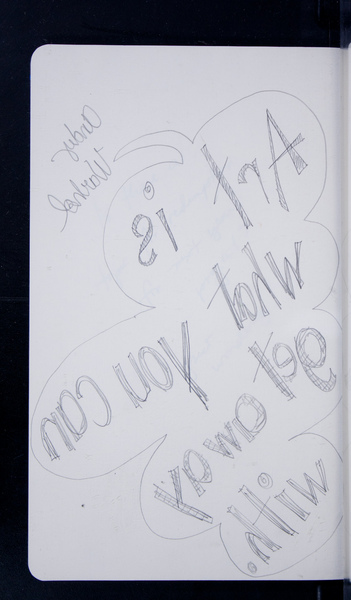 Art is
what
you can
get away
with.
Andy
Warhol